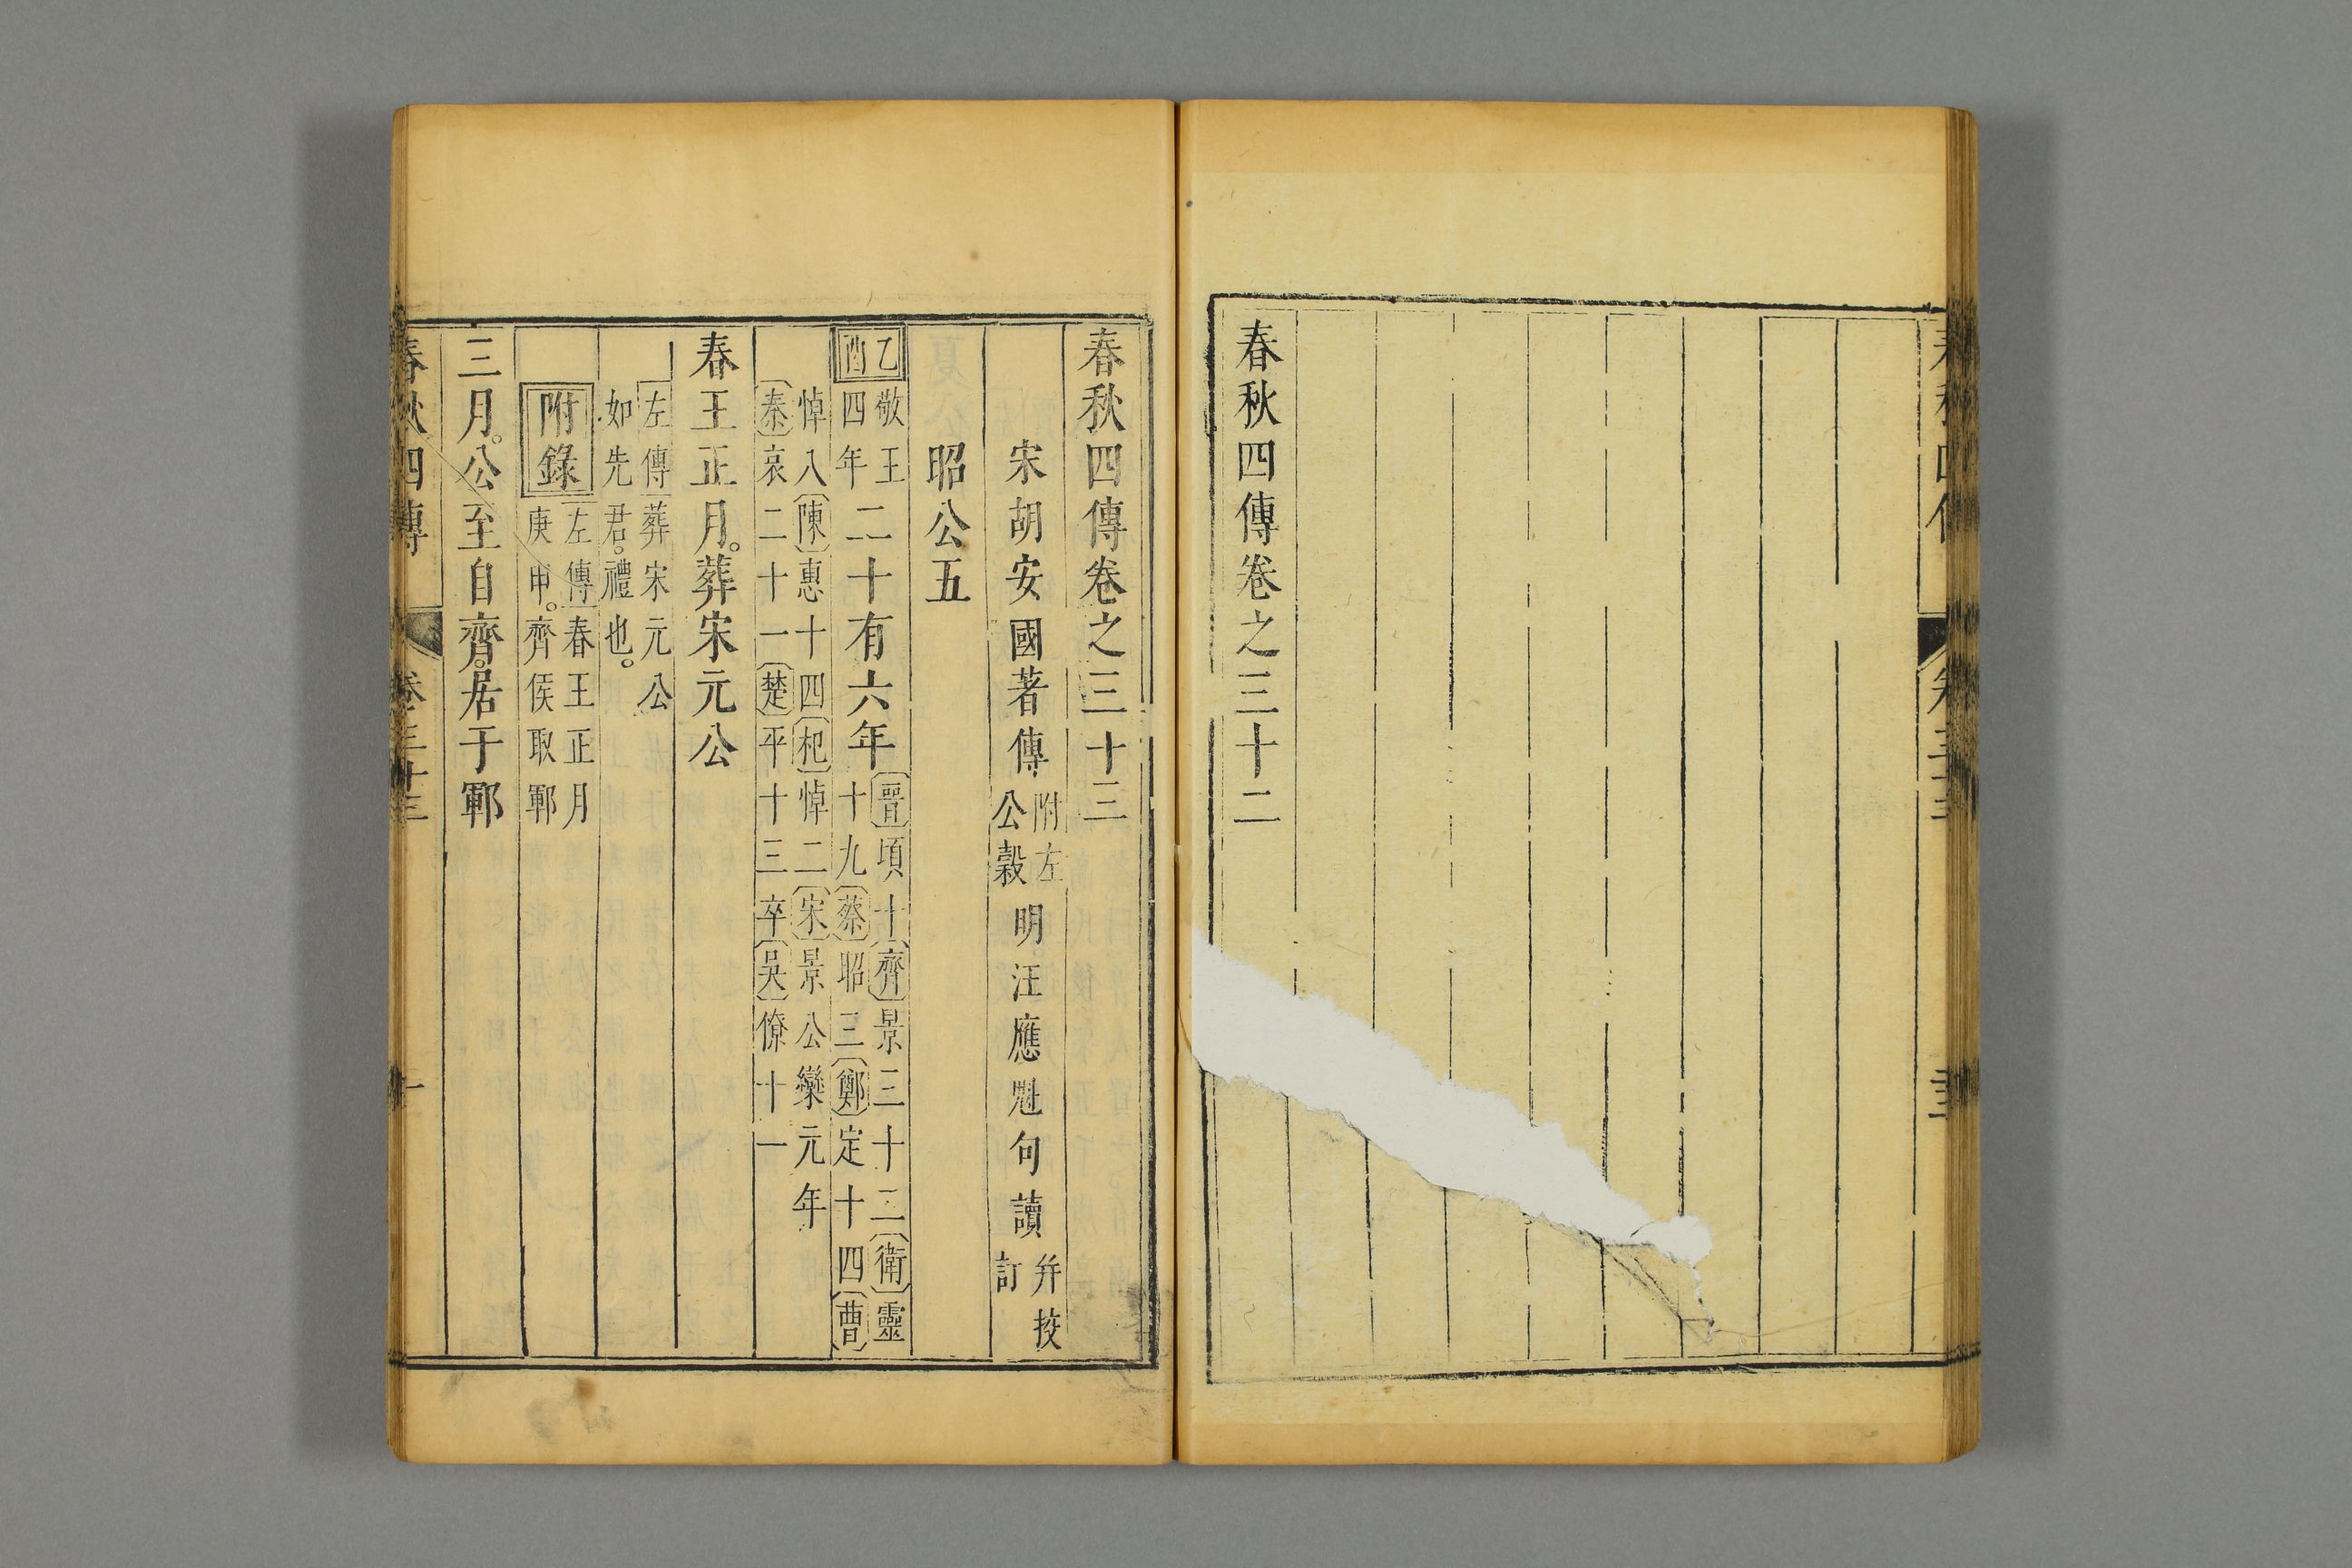 春秋四傳卷之三十二
春秋四傳卷之三十三
宋胡安國著傳附左公穀明汪應魁句讀并挍訂
昭公五
乙酉敬王四年二十有六年晉頃十齊景三十二衛靈十九蔡昭三鄭定十四曹
悼八陳惠十四杞悼二宋景公欒元年秦哀二十一楚平十三卒吳僚十一
春王正月。葬宋元公
左傳葬宋元公如先君。禮也。
附錄左傳春王正月庚申。齊侯取鄆
三月。公至自齊。居于鄆
春秋四傳 卷三十三 一